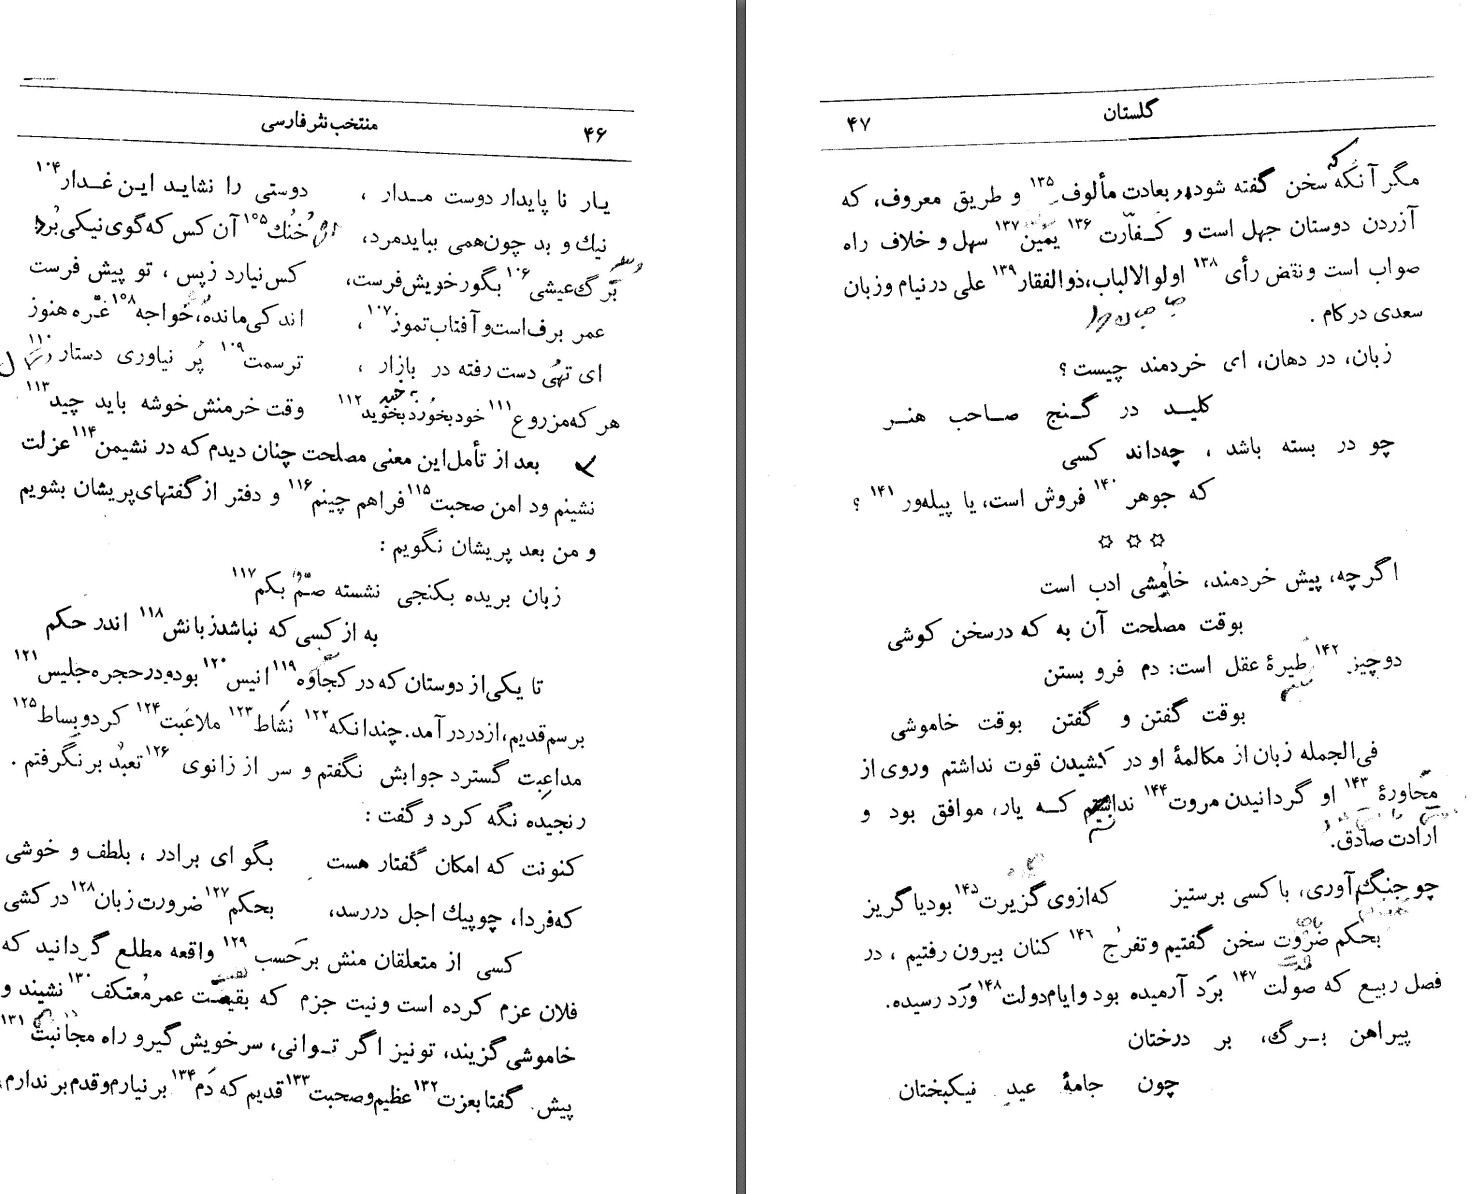 ۴۶
منتخب نثر فارسی
یار نا پایدار دوست مدار ، دوستی را نشاید این غدار۱۰۴
نیك و بد چون همی بباید مرد، خنك۱۰۵ آن كس كه گوی نیكی برد
برگ عیشی۱۰۶ بگور خویش فرست، كس نیارد زپس ، تو پیش فرست
عمر برف است و آفتاب تموز۱۰۷، اندكی مانده، خواجه۱۰۸ غره هنوز
ای تهی دست رفته در بازار ، ترسمت۱۰۹ پر نیاوری دستار۱۱۰
هر كه مزروع۱۱۱ خود بخورد بخوید۱۱۲ وقت خرمنش خوشه باید چید۱۱۳
بعد از تأمل این معنی مصلحت چنان دیدم كه در نشیمن۱۱۴ عزلت
نشینم ود امن صحبت۱۱۵ فراهم چینم۱۱۶ و دفتر از گفتهای پریشان بشویم
و من بعد پریشان نگویم :
زبان بریده بكنجی نشسته صم بكم۱۱۷
به از كسی كه نباشد زبانش۱۱۸ اندر حكم
تا یكی از دوستان كه در كجاوه۱۱۹ انیس۱۲۰ بود و در حجره جلیس۱۲۱
برسم قدیم، از در درآمد. چندانكه۱۲۲ نشاط۱۲۳ ملاعبت۱۲۴ كرد و بساط۱۲۵
مداعبت گسترد جوابش نگفتم و سر از زانوی ۱۲۶ تعبد برنگرفتم .
رنجیده نگه كرد و گفت :
كنونت كه امكان گفتار هست بگو ای برادر ، بلطف و خوشی
كه فردا، چو پیك اجل دررسد، بحكم۱۲۷ ضرورت زبان۱۲۸ در كشی
كسی از متعلقان منش برحسب ۱۲۹ واقعه مطلع گردانید كه
فلان عزم كرده است ونیت جزم كه بقیت عمر معتكف۱۳۰ نشیند و
خاموشی گزیند، تو نیز اگر توانی، سر خویش گیر و راه مجانبت۱۳۱
پیش. گفتا بعزت۱۳۲ عظیم و صحبت۱۳۳ قدیم كه دم۱۳۴ بر نیارم و قدم بر ندارم،
گلستان
۴۷
مگر آنگه كه سخن گفته شود بر عادت مألوف۱۳۵ و طریق معروف، كه
آزردن دوستان جهل است و كفارت ۱۳۶ یمین۱۳۷ سهل و خلاف راه
صواب است و نقض رأی ۱۳۸ اولوالالباب، ذوالفقار۱۳۹ علی در نیام و زبان
سعدی در كام .
زبان، در دهان، ای خردمند چیست؟
كلید در گنج صاحب هنر
چو در بسته باشد ، چه داند كسی
كه جوهر ۱۴۰ فروش است، یا پیله‌ور ۱۴۱ ؟
☆ ☆ ☆
اگرچه، پیش خردمند، خامشی ادب است
بوقت مصلحت آن به كه در سخن كوشی
دو چیز ۱۴۲ طیرۀ عقل است: دم فرو بستن
بوقت گفتن و گفتن بوقت خاموشی
فی‌الجمله زبان از مكالمۀ او در كشیدن قوت نداشتم وروی از
محاورۀ ۱۴۳ او گردانیدن مروت۱۴۴ ندانستم كه یار، موافق بود و
ارادت صادق.
چو جنگ آوری، با كسی برستیز كه از وی گزیرت۱۴۵ بود یا گریز
بحكم ضرورت سخن گفتیم و تفرج ۱۴۶ كنان بیرون رفتیم ، در
فصل ربیع كه صولت ۱۴۷ برد آرمیده بود و ایام دولت۱۴۸ ورد رسیده.
پیراهن برگ، بر درختان
چون جامۀ عید نیكبختان